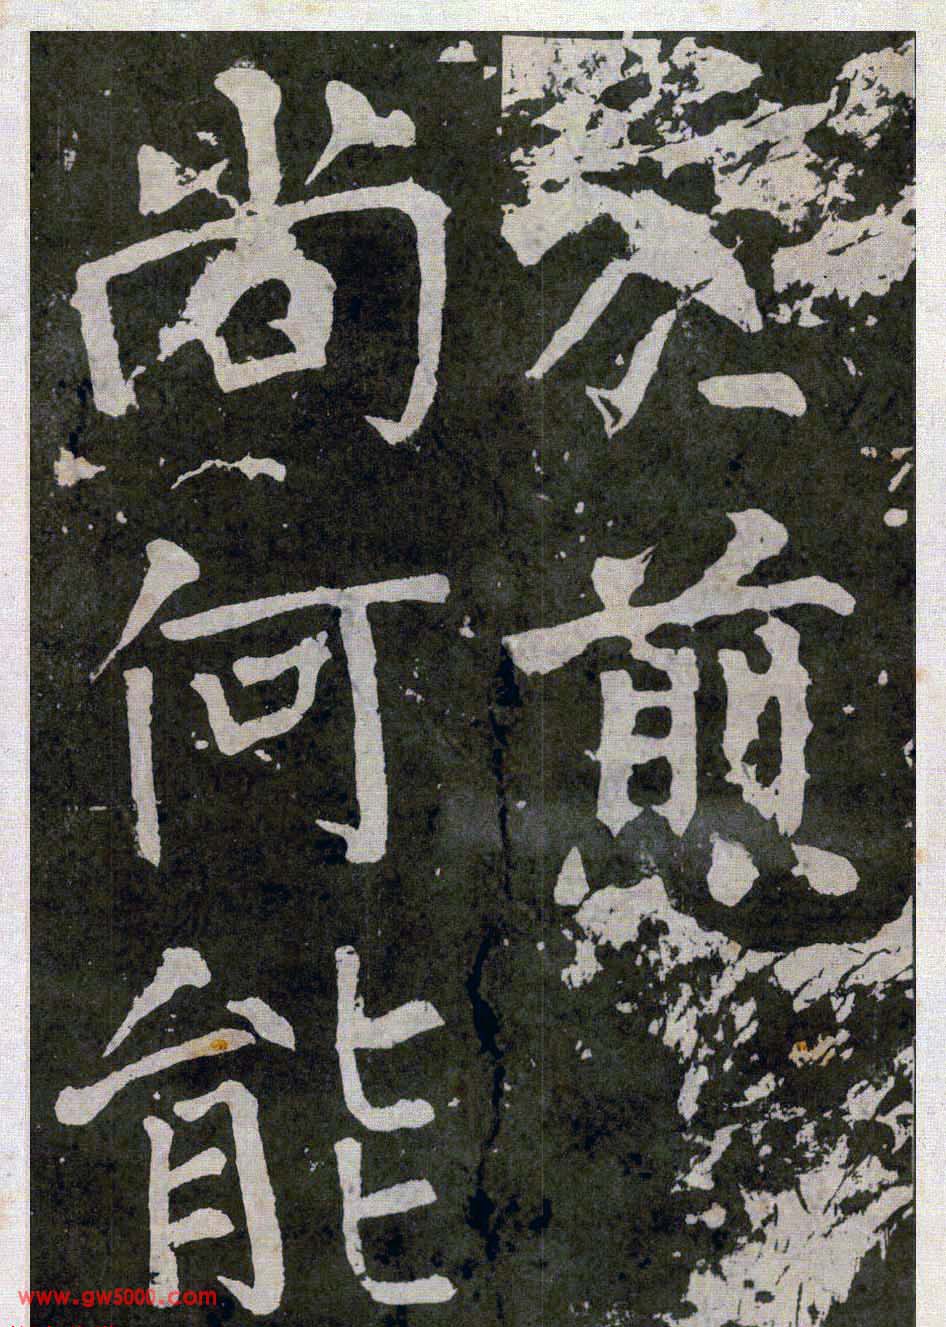 煎
尚何能
www.gw5000.com